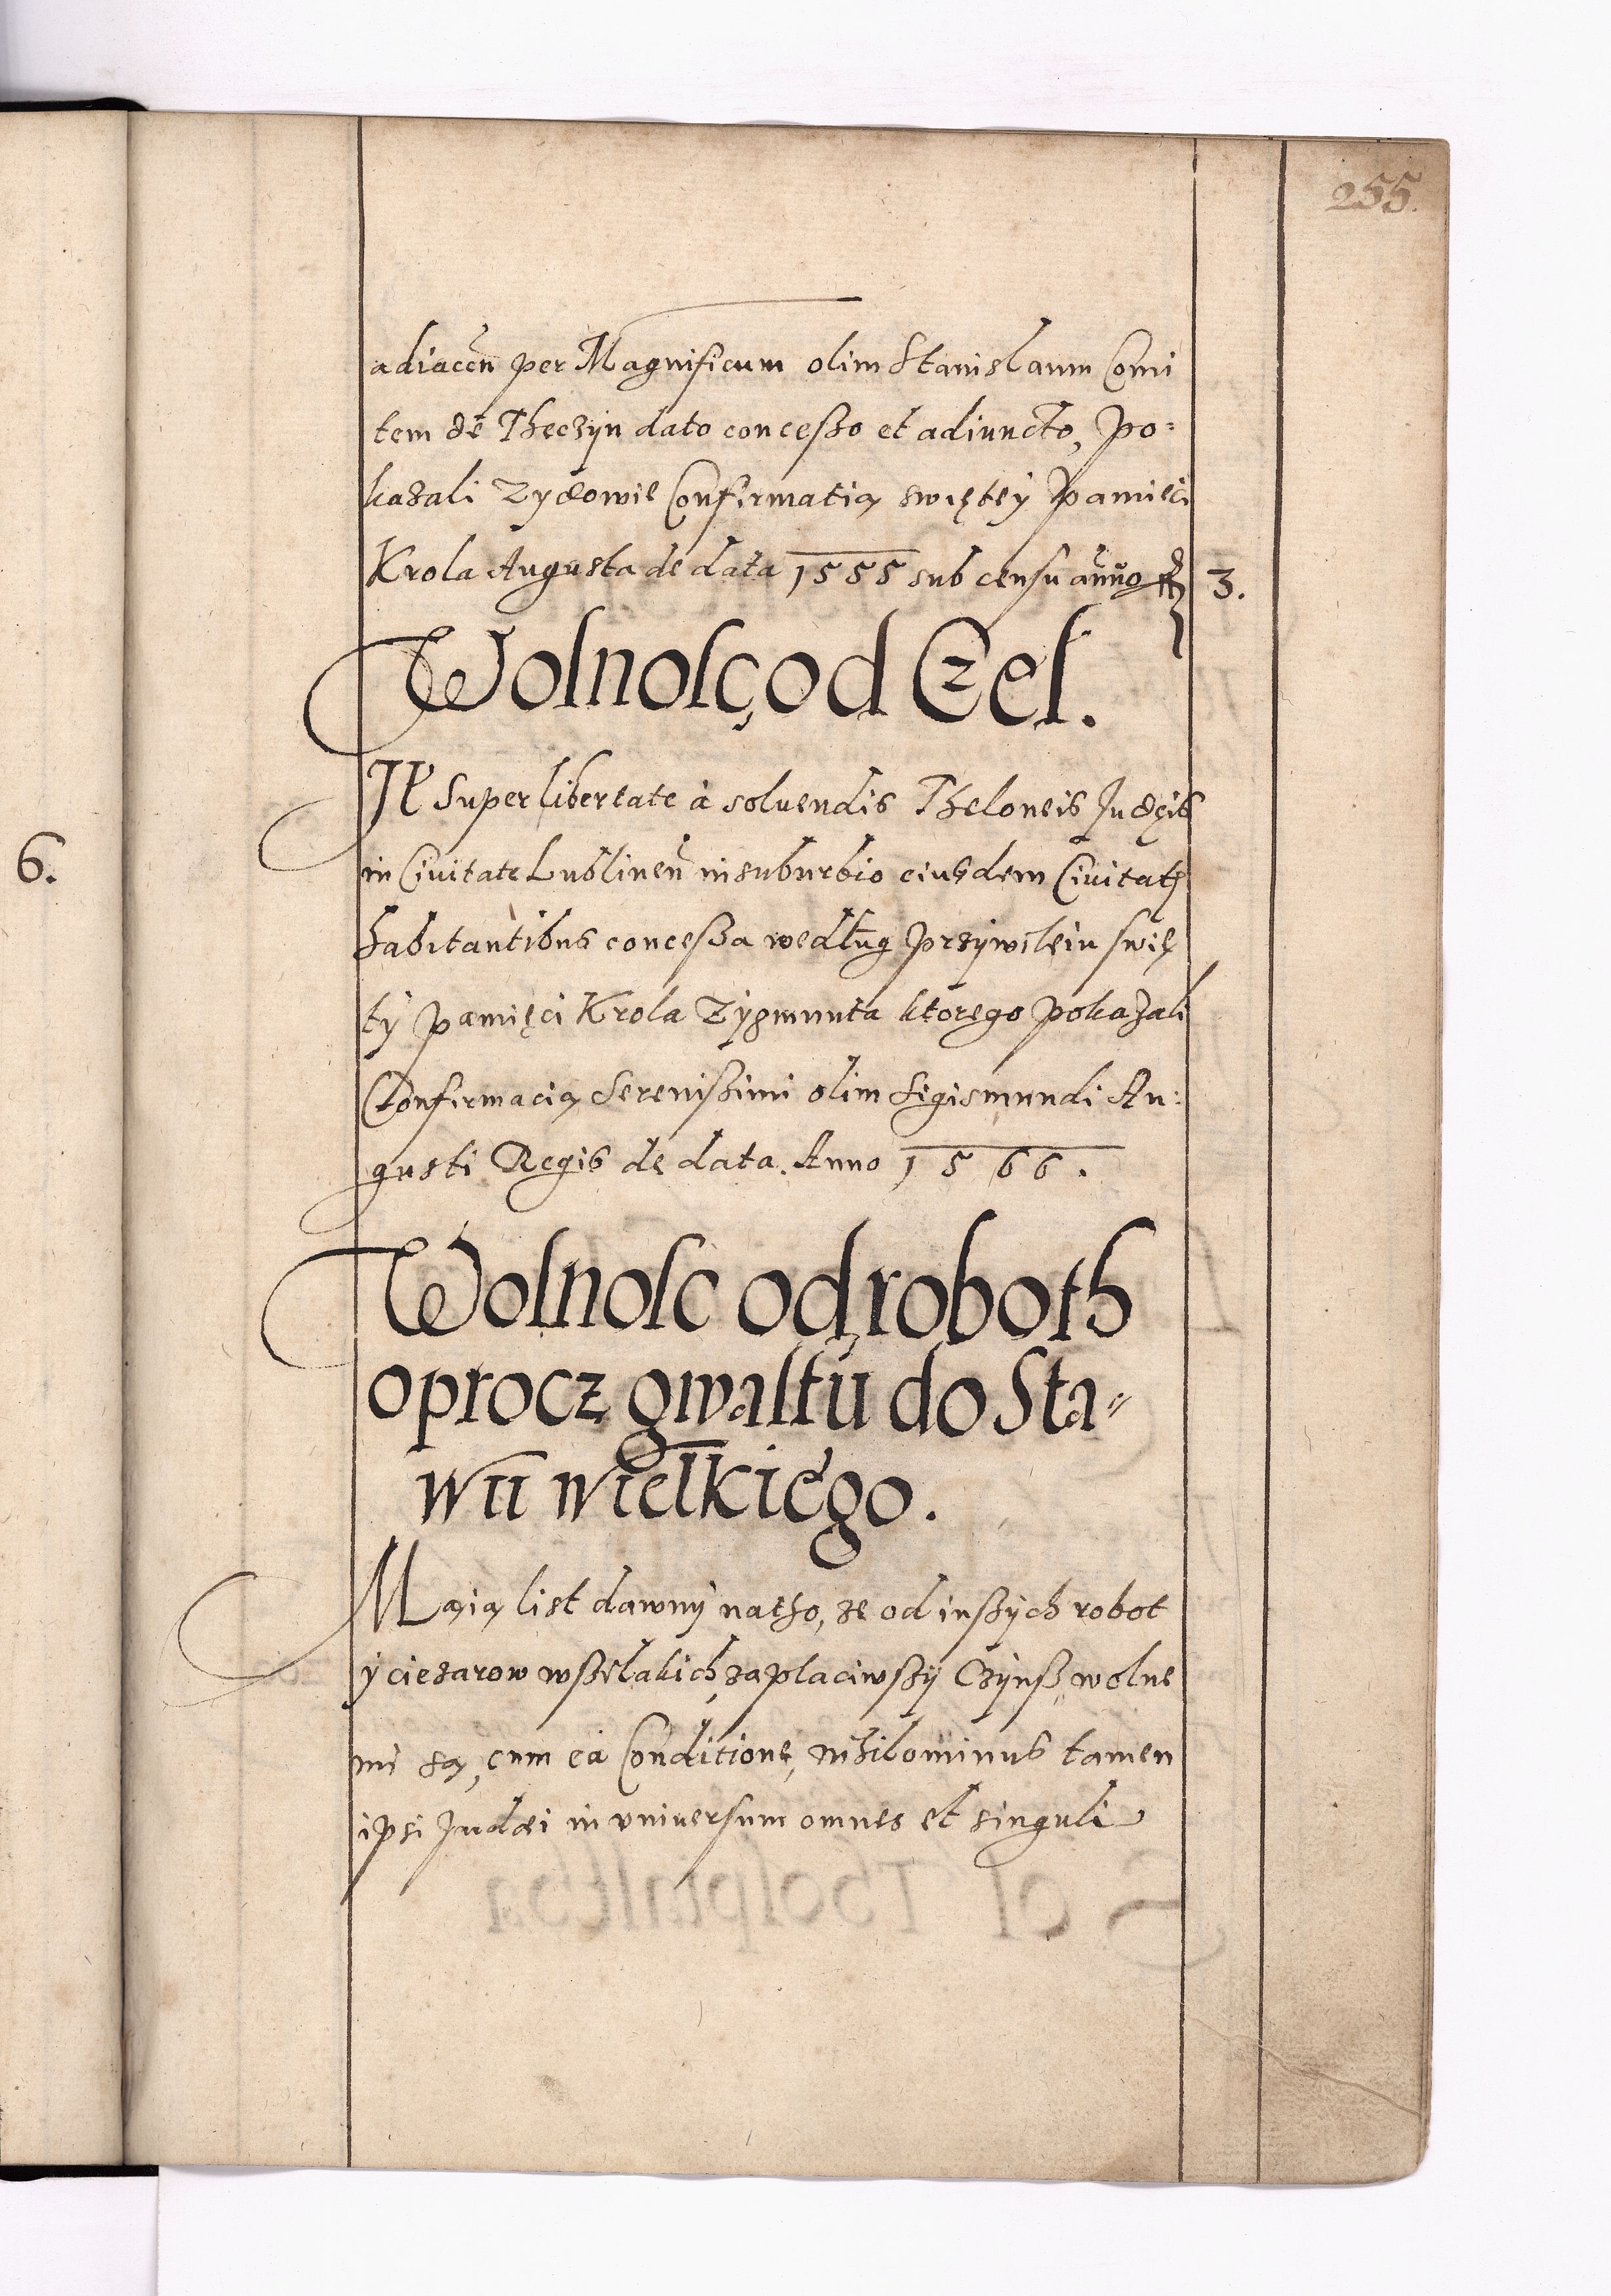 255.
adiacen̄ per Magnificum olim Stanislaum Comi
tem de Theczyn dato conceßo et adiuncto, po:
kazali Zydowie Confirmatią swiętey pamieći
Krola Augusta de data 1555 sub censu añuo
3.
Wolnosç od Czel.
Super libertate à soluendis Theloneis Judęis
in Ciuitate Lublineñ in suburbio eiusdem Ciuitatʒ
habitantibus conceßa według przywileiu swię
ty pamięci Krola Zygmunta ktorego pokazali
Confirmacią Serenißimi olim Sigismundi Au:
gusti Regis de data. Anno 1566.
Wolnosc od roboth
oprocz gwałtu do Sta=
wu wielkiego.
Maią list dawny natho, ze od inßych robot
y ciezarow wßelakich, zaplaciwßy Czynß, wolne
mi są, cum ea Conditione, nihilominus tamen
ipsi Judæi in vniuersum omnes et singuli
6.